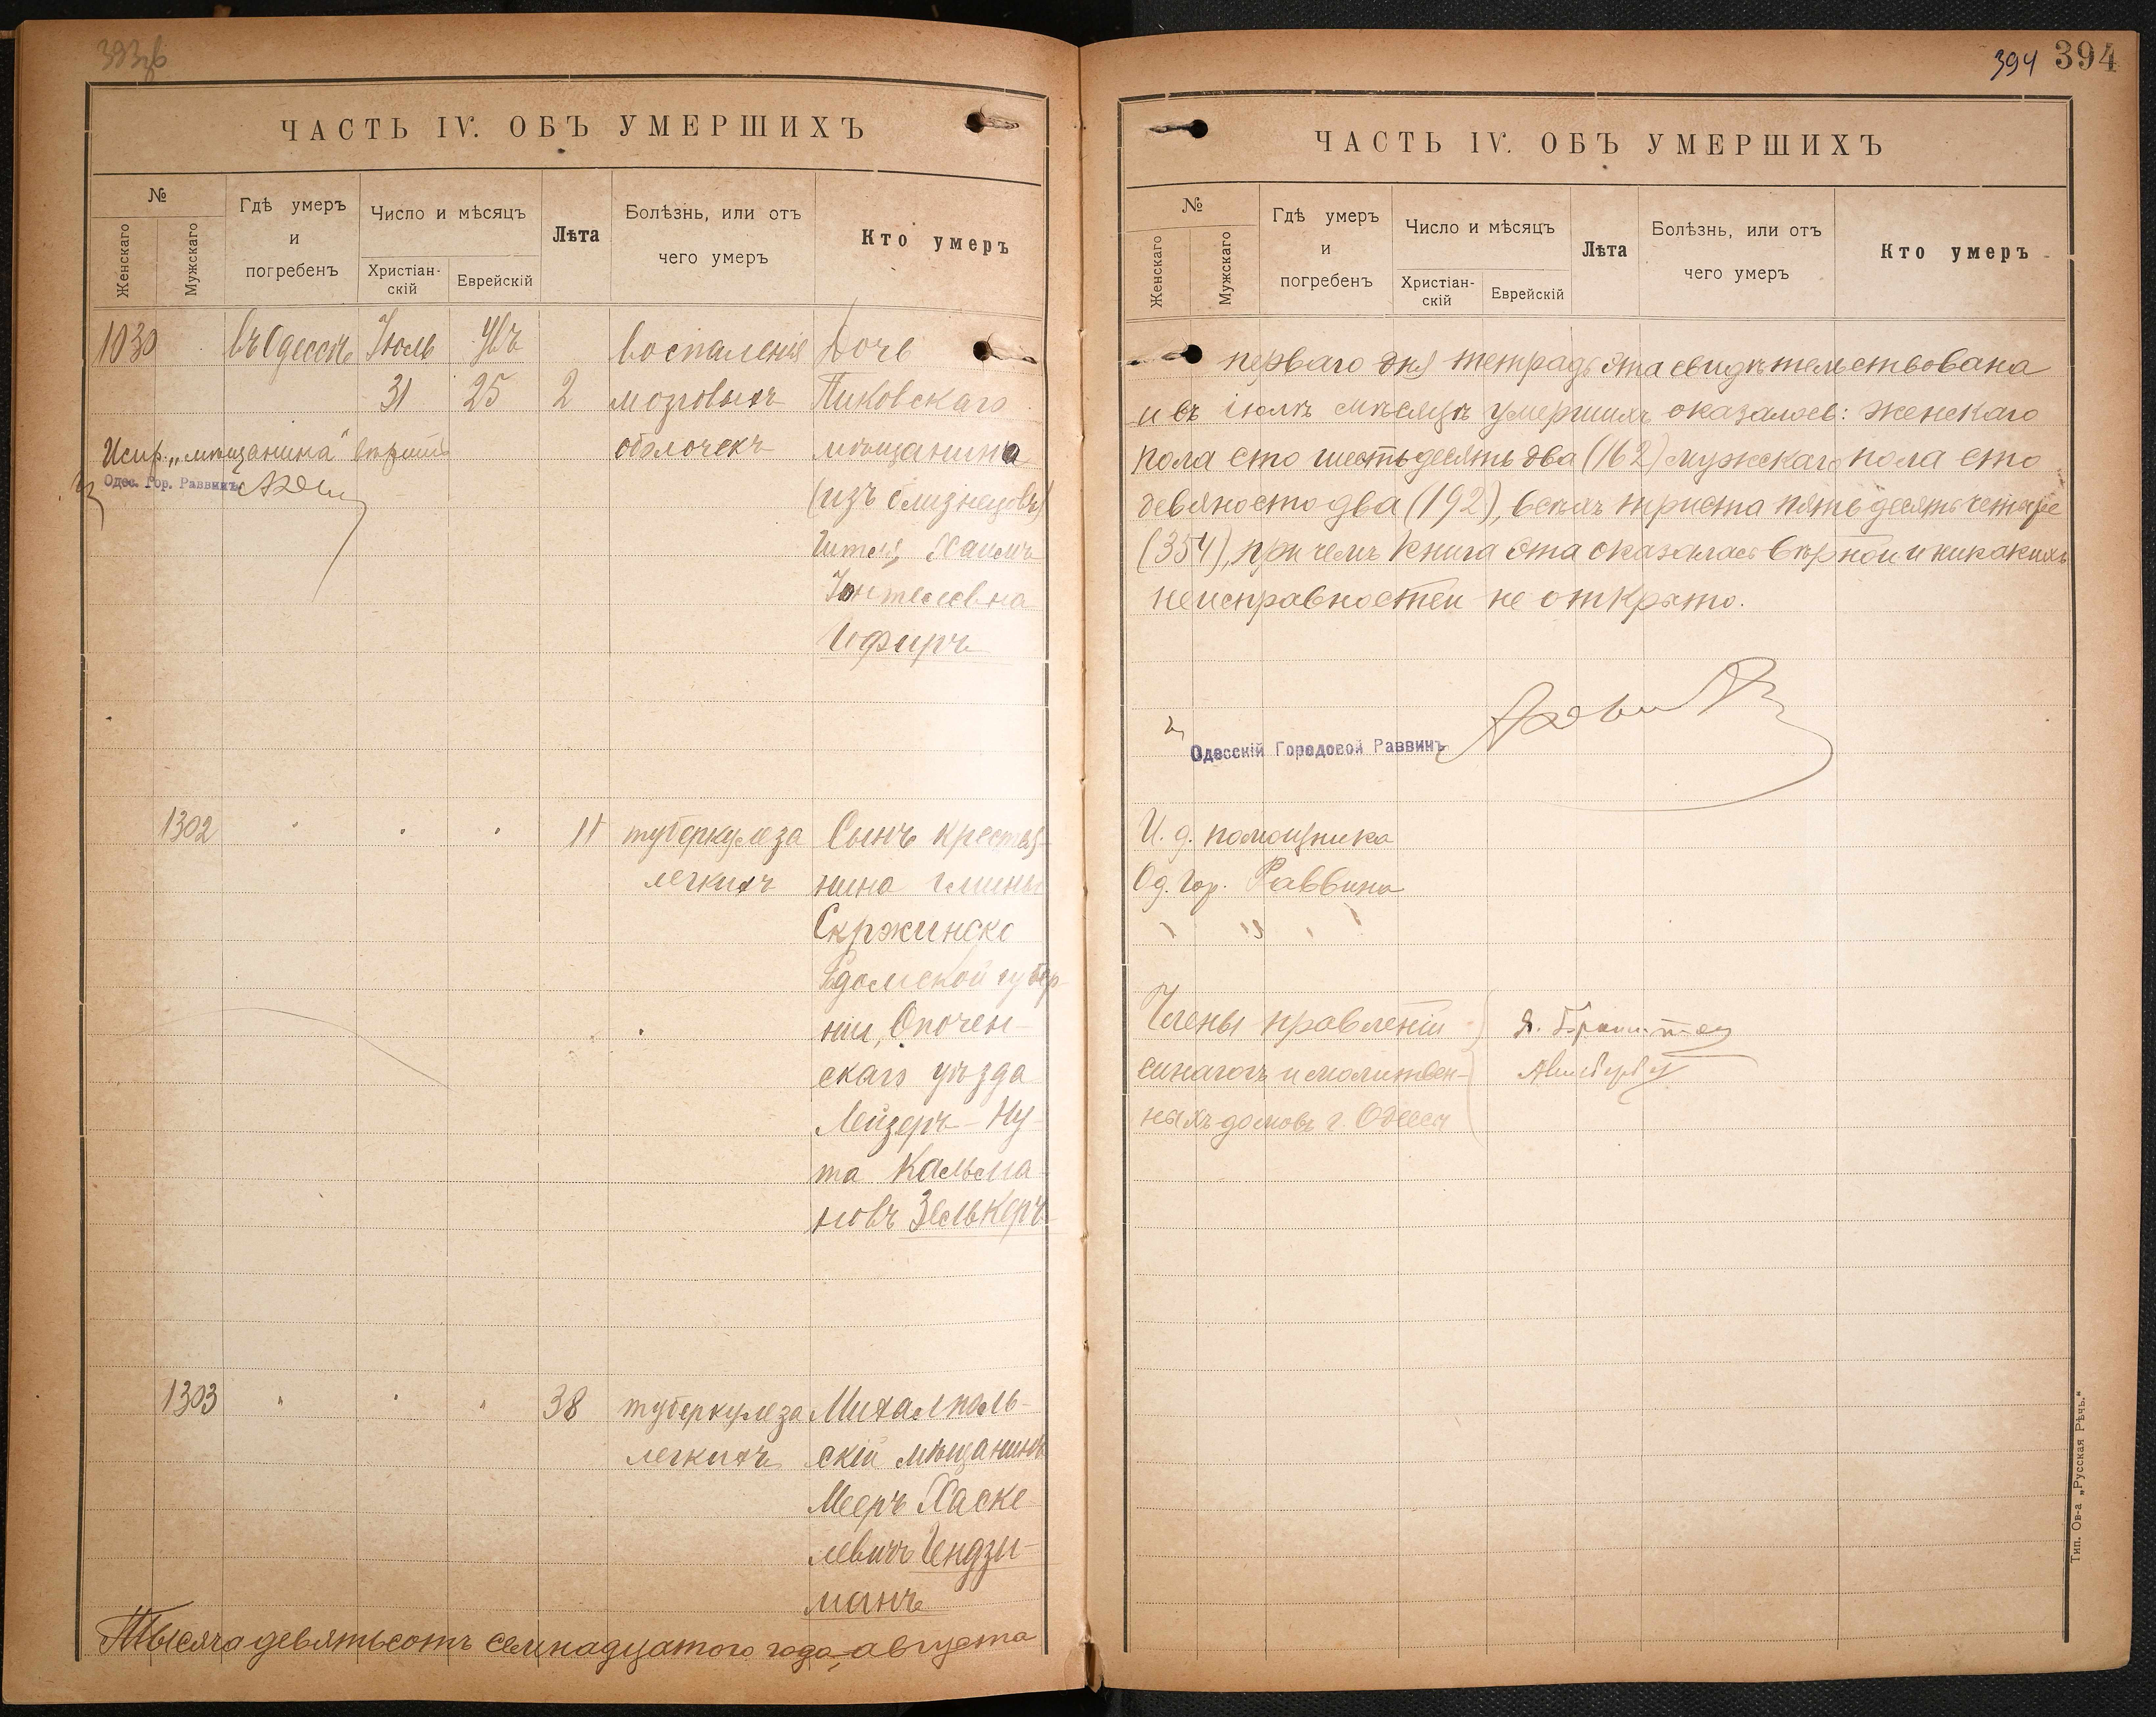 394 394
ЧАСТЬ IV. ОБЪ УМЕРШИХЪ
№
Женскаго
Мужскаго
Гдѣ умеръ
и
погребенъ
Число и мѣсяцъ
Христіан-
скій
Еврейскій
Лѣта
Болѣзнь, или отъ
чего умеръ
Кто умеръ
1030 въ Одессѣ Іюль Авъ воспаленія Дочь
31 25 2 мозговыхъ Пиковскаго
оболочекъ мѣщанина
Испр. „мѣщанина" вѣрить
Одес. Гор. Раввинъ
(изъ близнецовъ)
Гитля Хаимъ
Іонтелевна
Офиръ
1302 " " " 11 туберкулеза Сынъ крестья-
легкихъ нина гмины
Скржинско
Радомской губер-
ніи, Опочен-
скаго уѣзда
Лейзеръ-Ну-
та Кальма-
новъ Зелькеръ
1303 " " " 38 туберкулеза Михалполь-
легкихъ скій мѣщанинъ
Мееръ Хаске-
левичъ Гендзи-
манъ
Тысяча девятьсотъ семнадцатого года августа
ЧАСТЬ IV. ОБЪ УМЕРШИХЪ
№
Женскаго
Мужскаго
Гдѣ умеръ
и
погребенъ
Число и мѣсяцъ
Христіан-
скій
Еврейскій
Лѣта
Болѣзнь, или отъ
чего умеръ
Кто умеръ
перваго дня тетрадь эта свидѣтельствована
и въ іюлѣ мѣсяцѣ умершихъ оказалось: женскаго
пола сто шестьдесятъ два (162) мужскаго пола сто
девяносто два (192), всѣхъ триста пятьдесятъ четыре
(354), при чемъ книга эта оказалась вѣрной и никакихъ
неисправностей не открыто.
Одесскій Городовой Раввинъ
И. д. помощника
Од. Гор. Раввина
Члены правленій
синагогъ и молитвен-
ныхъ домовъ г. Одессы
Тип. Ов-а „Русская Рѣчь."